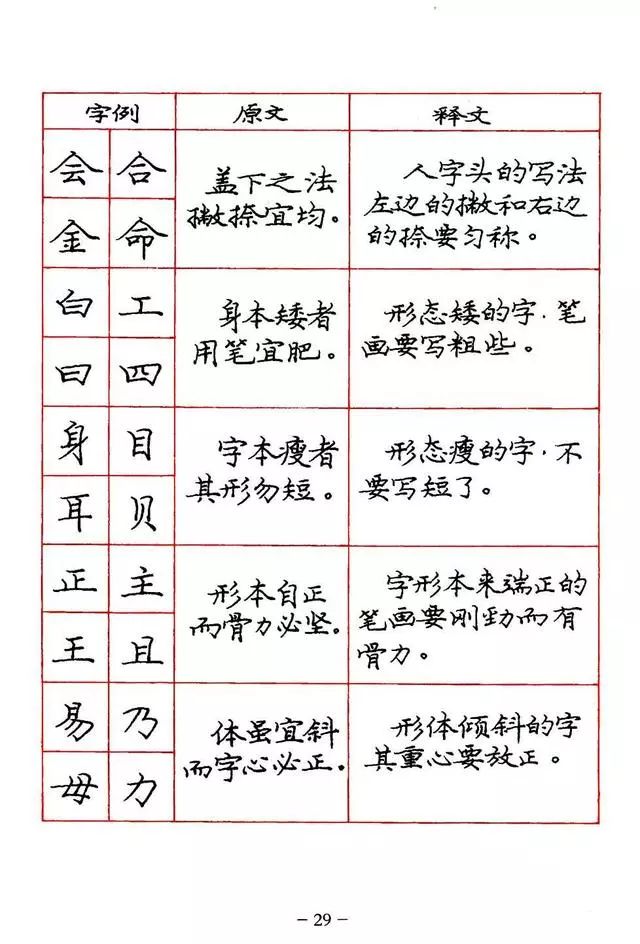 字例 原文 释文
会 合
金 命
盖下之法
撇捺宜均。
人字头的写法
左边的撇和右边
的捺要匀称。
白 工
曰 四
身本矮者
用笔宜肥。
形态矮的字，笔
画要写粗些。
身 目
耳 贝
字本瘦者
其形勿短。
形态瘦的字，不
要写短了。
正 主
王 且
形本自正
而骨力必坚。
字形本来端正的
笔画要刚劲而有
骨力。
易 乃
毋 力
体虽宜斜
而字心必正。
形体倾斜的字
其重心要放正。
- 29 -